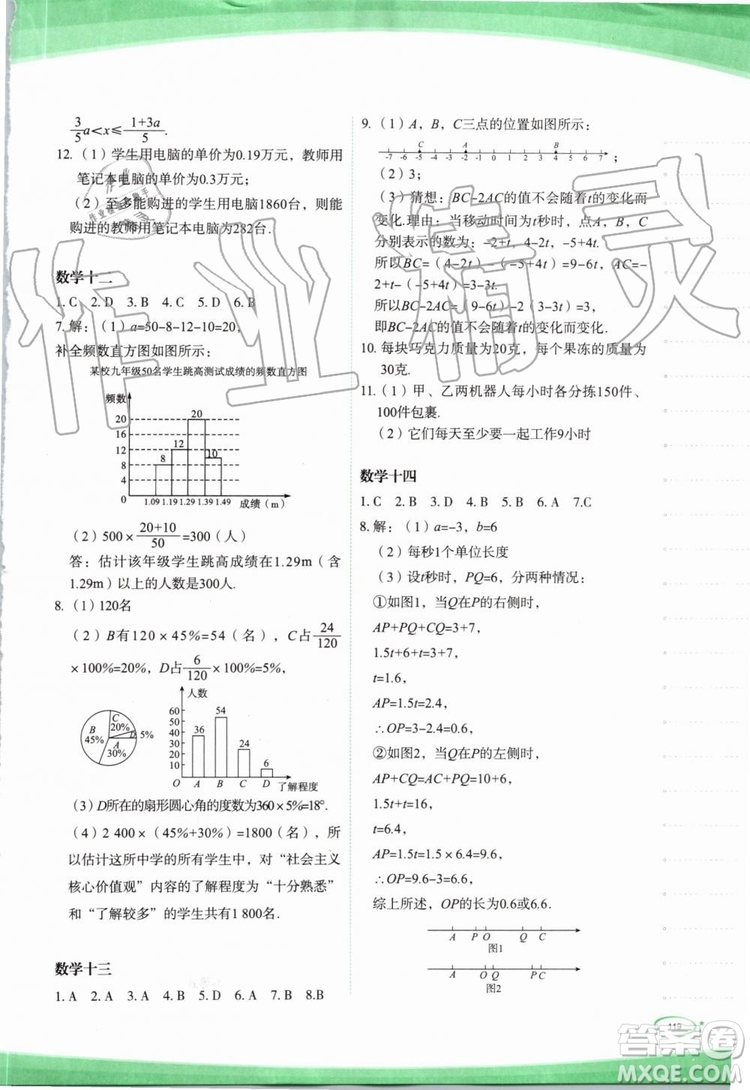 3/5 a<x≤(1+3a)/5.
12.（1）学生用电脑的单价为0.19万元，教师用
笔记本电脑的单价为0.3万元；
（2）至多能购进的学生用电脑1860台，则能
购进的教师用笔记本电脑为282台.
数学十二
1. C 2. D 3. B 4. C 5. D 6. B
7. 解：（1）a=50-8-12-10=20，
补全频数直方图如图所示：
某校九年级50名学生跳高测试成绩的频数直方图
频数
20
18
16
14
12
10
8
6
4
2
0
8
12
20
10
1.09 1.19 1.29 1.39 1.49 成绩（m）
（2）500×(20+10)/50=300（人）
答：估计该年级学生跳高成绩在1.29m（含
1.29m）以上的人数是300人.
8.（1）120名
（2）B有120×45%=54（名），C占24/120
×100%=20%，D占6/120×100%=5%，
C
20%
B
45%
D 5%
A
30%
人数
60
50
40
30
20
10
36
54
24
6
O A B C D 了解程度
（3）D所在的扇形圆心角的度数为360×5%=18°.
（4）2 400×（45%+30%）=1800（名），所
以估计这所中学的所有学生中，对“社会主义
核心价值观”内容的了解程度为“十分熟悉”
和“了解较多”的学生共有1 800名.
数学十三
1. A 2. A 3. A 4. B 5. D 6. A 7. B 8. B
9.（1）A，B，C三点的位置如图所示：
A B C
-7 -6 -5 -4 -3 -2 -1 0 1 2 3 4 5 6 7 ；
（2）3；
（3）猜想：BC-2AC的值不会随着t的变化而
变化.理由：当移动时间为t秒时，点A、B、C
分别表示的数为：-2+t，4-2t，-5-t.
所以BC=（4-2t）-（-5-t）=9-6t，AC=（-
2+t-（-5-t）=3-3t.
所以BC-2AC=（9-6t）-2（3-3t）=3.
即BC-2AC的值不会随着t的变化而变化.
10. 每块巧克力质量为20克，每个果冻的质量为
30克.
11.（1）甲、乙两机器人每小时各分拣150件、
100件包裹.
（2）它们每天至少要一起工作9小时
数学十四
1. C 2. B 3. D 4. B 5. B 6. A 7. C
8. 解：（1）a=-3，b=6
（2）每秒1个单位长度
（3）设t秒时，PQ=6，分两种情况：
①如图1，当Q在P的右侧时，
AP+PQ+CQ=3+7，
1.5t+6+t=3+7，
t=1.6，
AP=1.5t=2.4，
∴OP=3-2.4=0.6.
②如图2，当Q在P的左侧时，
AP+CQ=AC+PQ=10+6，
1.5t+t=16，
t=6.4，
AP=1.5t=1.5×6.4=9.6，
∴OP=9.6-3=6.6.
综上所述，OP的长为0.6或6.6.
A P O Q C
图1
A O Q P C
图2
119
作业精灵
答案圈
MXQE.COM